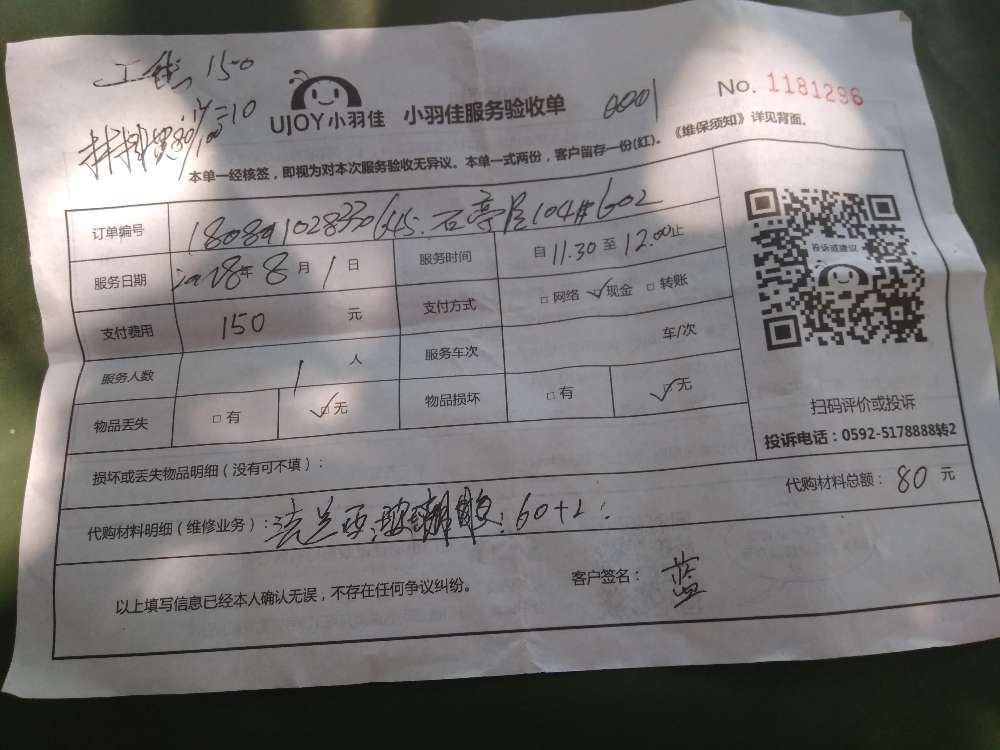 工 150
UJOY小羽佳 小羽佳服务验收单 0001 No. 1181296
本单一经核签，即视为对本次服务验收无异议。本单一式两份，客户留存一份(红)。《维保须知》详见背面。
订单编号
服务日期 2018年 8 月 1 日 服务时间 自 11.30 至 12.00止
支付费用 150 元 支付方式 □网络 ☑现金 □转账
服务人数 1 人 服务车次 车/次
物品丢失 □有 ☑无 物品损坏 □有 ☑无
投诉或建议
扫码评价或投诉
投诉电话：0592-5178888转2
损坏或丢失物品明细（没有可不填）：
代购材料明细（维修业务）：法兰西 60+2 代购材料总额：80 元
以上填写信息已经本人确认无误，不存在任何争议纠纷。 客户签名：蓝